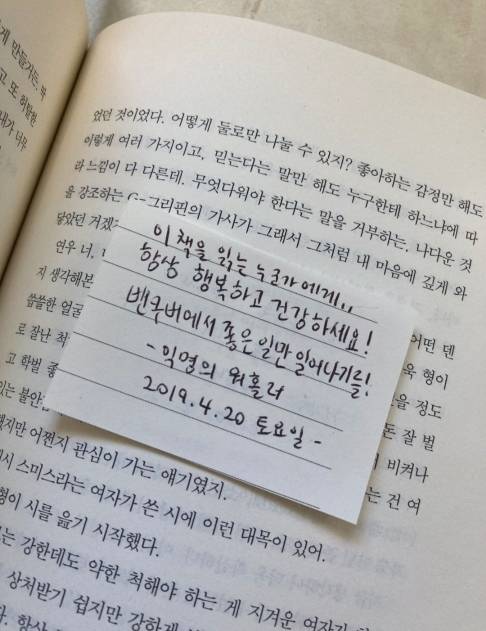 게 만들거든. 딱
고 또 허탈한
내가 너무
었던 것이었다. 어떻게 둘로만 나눌 수 있지? 좋아하는 감정만 해도
이렇게 여러 가지이고, 믿는다는 말만 해도 누구한테 하느냐에 따
라 느낌이 다 다른데. 무엇다워야 한다는 말을 거부하는, 나다운 것
을 강조하는 G-그리핀의 가사가 그래서 그처럼 내 마음에 깊게 와
닿았던 거겠
연우 너, 어떤 덴
지 생각해본 형이
씁쓸한 얼굴 을 정도
로 잘난 척 돈 잘 벌
고 학벌 좋 비켜나
있는 는 건 여
했지만 어쩐지 관심이 가는 얘기였지.
시 스미스라는 여자가 쓴 시에 이런 대목이 있어.
형이 시를 읊기 시작했다.
는 강한데도 약한 척해야 하는 게 지겨운 여자가
상처받기 쉽지만 강하게
항상
이 책을 읽는 누군가에게..
항상 행복하고 건강하세요!
밴쿠버에서 좋은 일만 일어나기를!
- 익명의 워홀러
2019.4.20 토요일 -